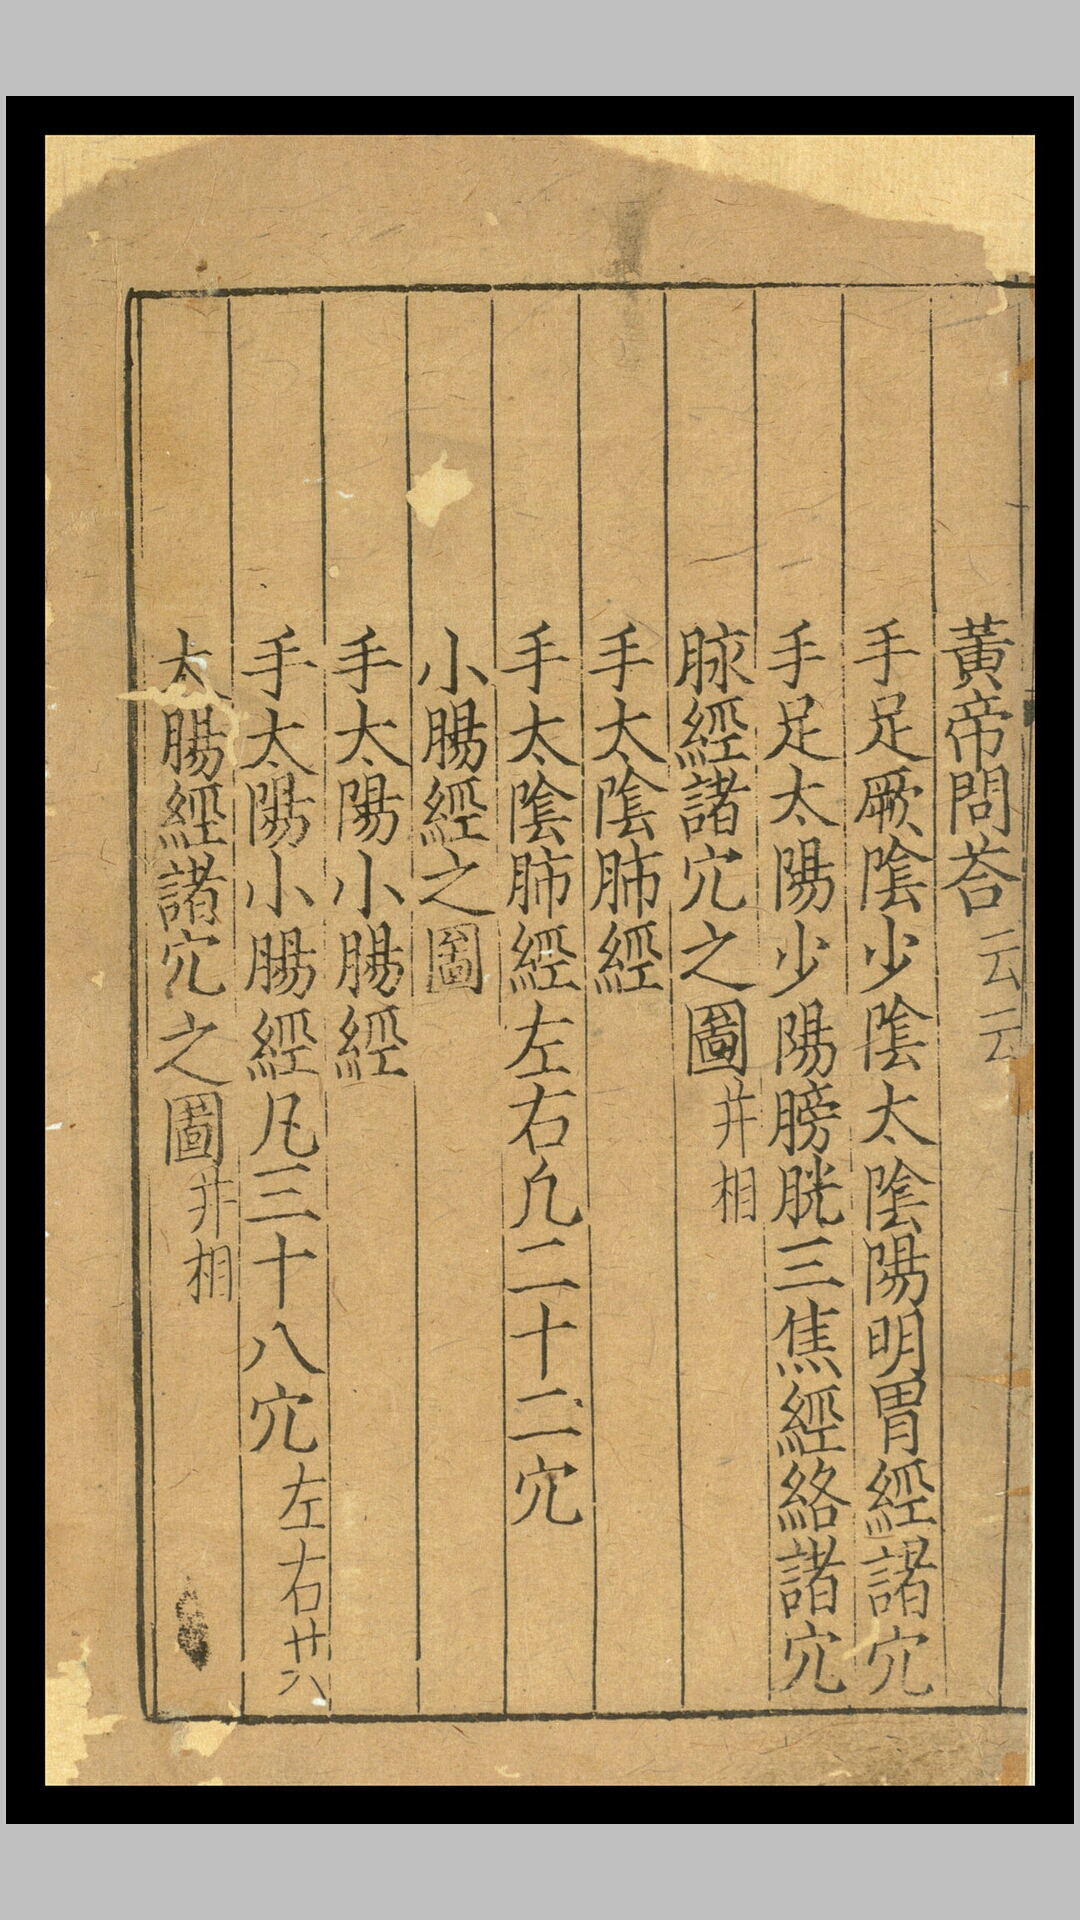 黃帝問荅云云
手足厥陰少陰太陰陽明胃經諸穴
手足太陽少陽膀胱三焦經絡諸穴
脉經諸穴之圖并相
手太陰肺經
手太陰肺經左右凢二十二穴
小腸經之圖
手太陽小腸經
手太陽小腸經凡三十八穴左右廿八
太腸經諸穴之圖并相